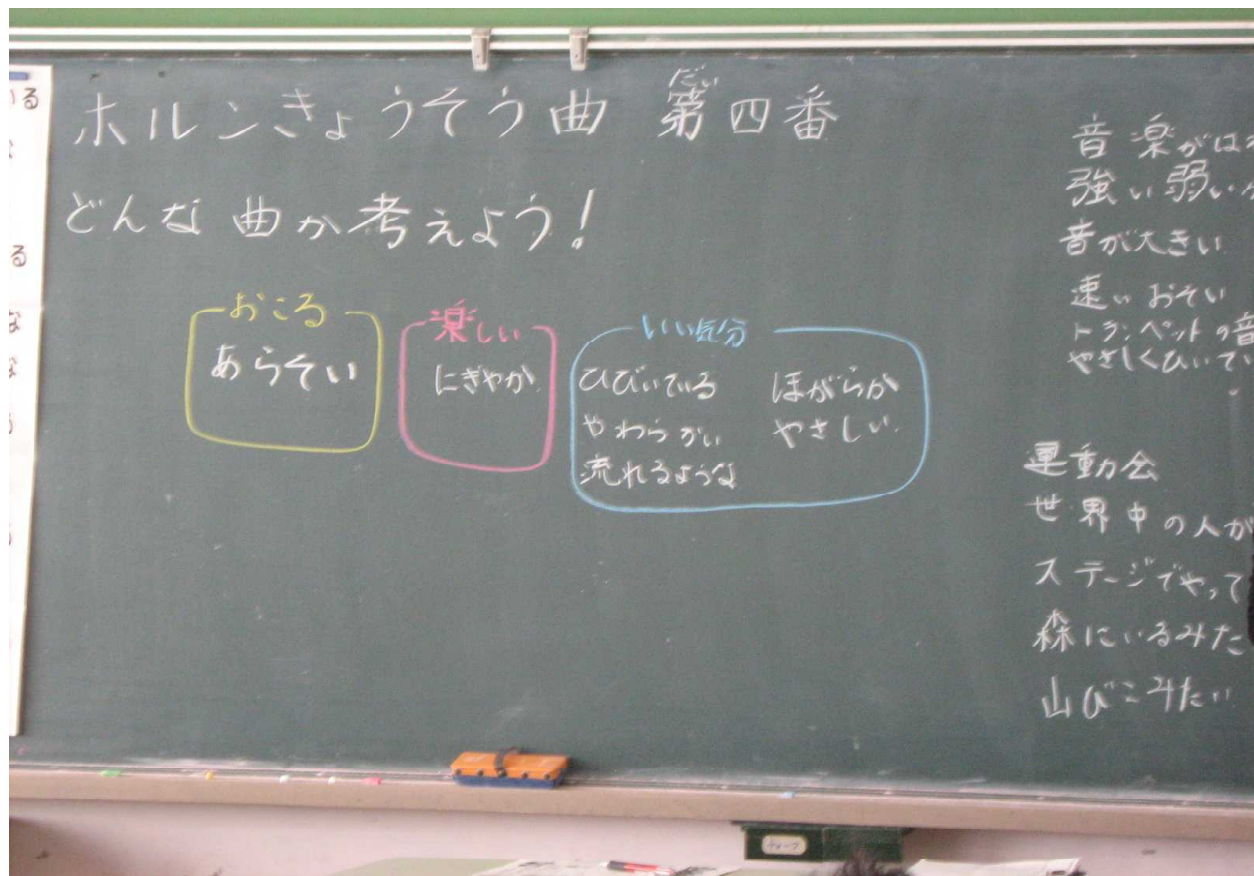 ホルンきょうそう曲 第四番
だい
どんな曲か考えよう!
おこる
あらそい
楽しい
にぎやか
いい気分
ひびいている
やわらかい
流れるような
ほがらか
やさしい
音楽がは
強い弱い
音が大きい
速い おそい
トランペットの音
やさしくひいてい
運動会
世界中の人が
ステージでやって
森にいるみた
山びこみたい
る
る
な
チョーク